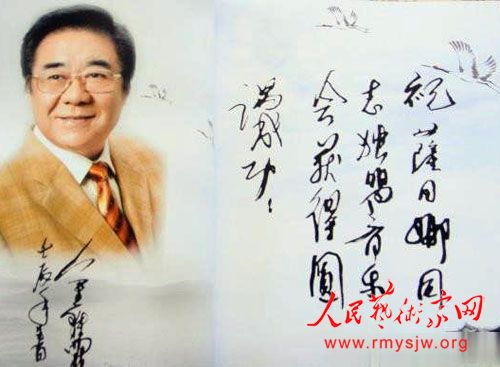 祝薩日娜同
志独唱音乐
会获得圆
满成功！
人民藝術家网
www.rmysjw.org